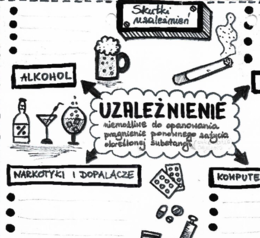 Skutki
uzależnień
ALKOHOL
UZALEŻNIENIE
niemożliwe do opanowania
pragnienie ponownego zażycia
określonej substancji
%
NARKOTYKI I DOPALACZE
KOMPUTE